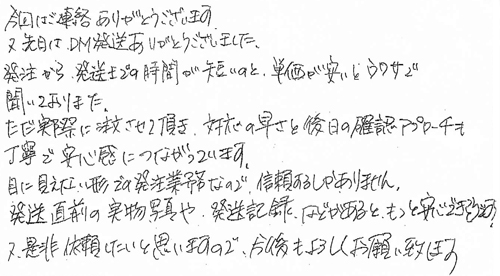 今回はご連絡ありがとうございます。
又先日は、DM発送ありがとうございました。
発注から、発送までの時間が短いのと、単価が安いとウワサで
聞いておりました。
ただ実際に注文させて頂き、対応の早さと後日の確認アプローチも
丁寧で安心感につながっています。
目に見えない形での発注業務なので、信頼するしかありません。
発送直前の実物写真や、発送記録、などがあると、もっと安心できそうです。
又、是非依頼したいと思いますので、今後もよろしくお願い致します